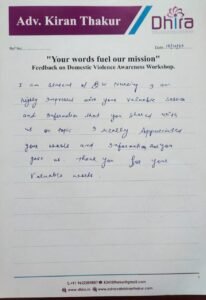 Adv. Kiran Thakur
Dhira
Ref No.
Date
"Your words fuel our mission"
Feedback on Domestic Violence Awareness Workshop.
I am student of Nursing I am
highly impressed with your valuable
and information that you shared with
us on topic I Really Appreciated
your words and Information that you
gave us thank you for your
Valuable words
www.dhira.in